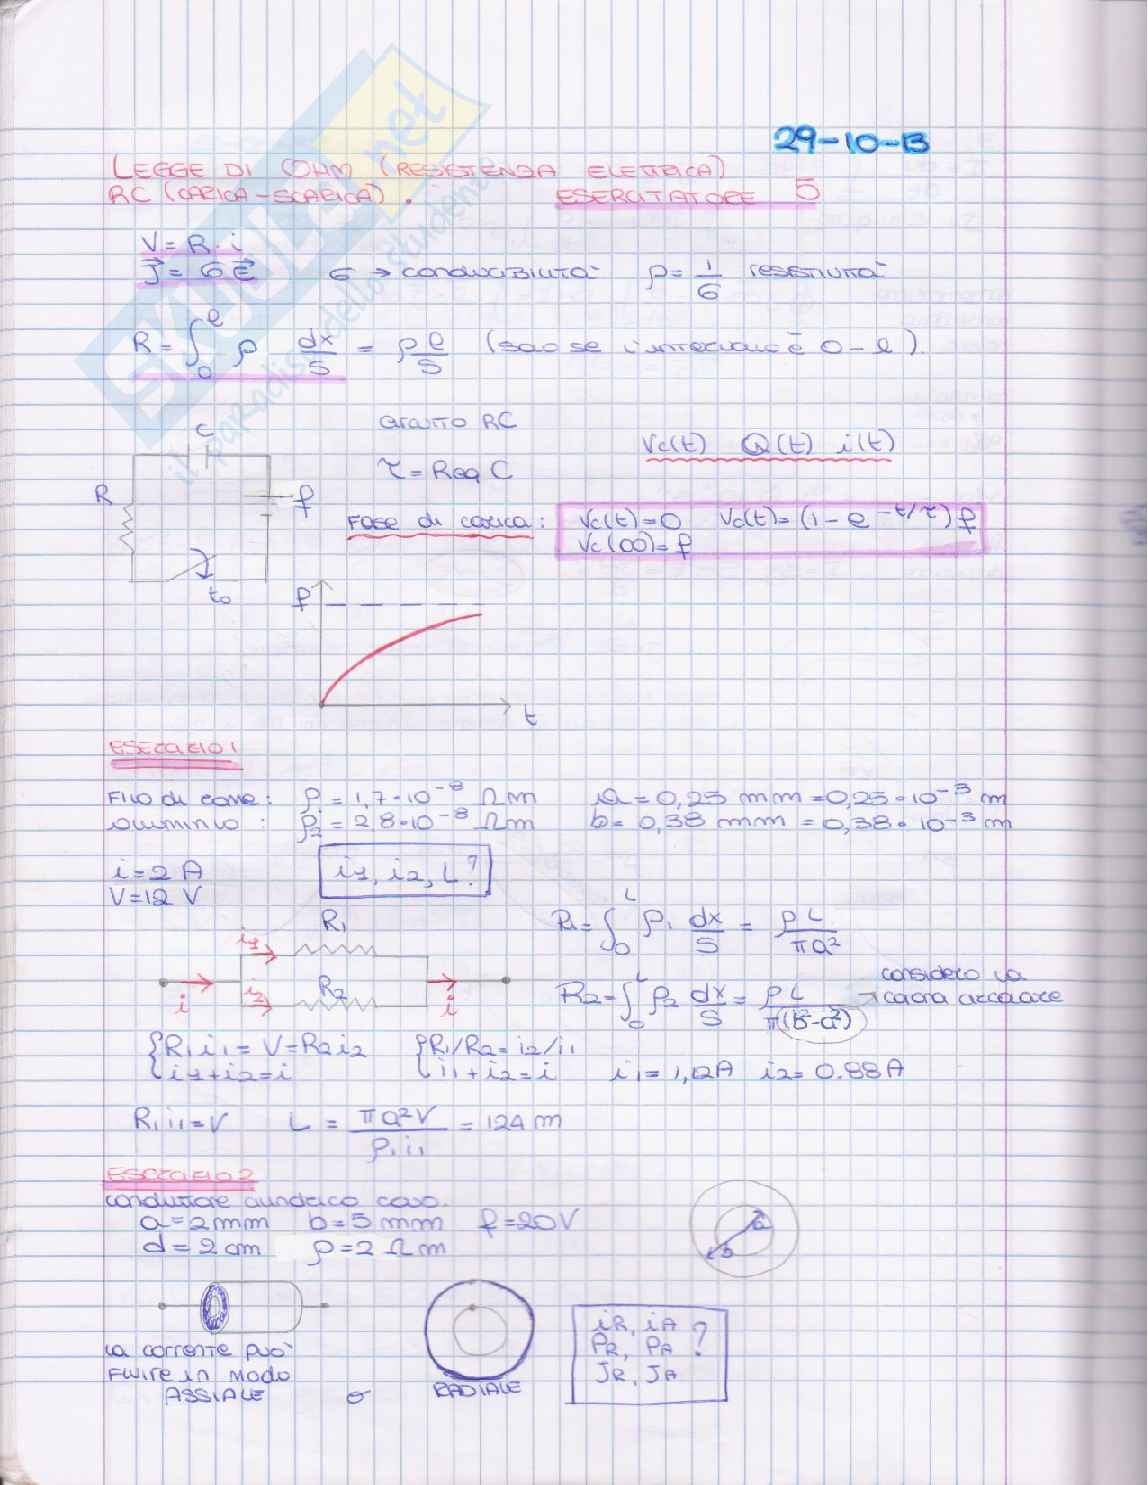 29-10-13
LEGGE DI OHM (RESISTENZA ELETTRICA)
RC (CARICA-SCARICA). ESERCITATORE 5
V = R · i
J = σE σ → conducibilità ρ = 1/σ resistività
R = ∫₀ˡ ρ dx/S = ρ l/S (solo se l'intervallo è 0-l)
circuito RC
Vc(t) Q(t) i(t)
τ = Req C
C
R
f
t₀
Fase di carica: Vc(t)=0 Vc(t)=(1-e^-t/τ) f
Vc(∞)=f
f
t
ESERCIZIO 1
Filo di rame: ρ₁ = 1,7·10⁻⁸ Ωm a = 0,25 mm = 0,25·10⁻³ m
alluminio: ρ₂ = 2,8·10⁻⁸ Ωm b = 0,38 mm = 0,38·10⁻³ m
i = 2 A
V = 12 V
i₁, i₂, L?
R₁ = ∫₀ᴸ ρ₁ dx/S = ρL/πa²
R₂ = ∫₀ᴸ ρ₂ dx/S = ρL/π(b²-a²) → considero la
corona circolare
R₁
i₁
R₂
i₂
i
i
R₁i₁ = V = R₂i₂
i₁+i₂=i
R₁/R₂ = i₂/i₁
i₁+i₂=i i₁ = 1,12A i₂ = 0.88A
R₁i₁=V L = πa²V/ρ₁i₁ = 124 m
ESERCIZIO 2
conduttore cilindrico cavo.
a = 2mm b = 5 mm f = 20V
d = 2 cm ρ = 2 Ωm
a
b
la corrente può
fluire in modo
ASSIALE o RADIALE
iR, iA
PR, PA ?
JR, JA
SKUOLA.net
il paradiso dello studente